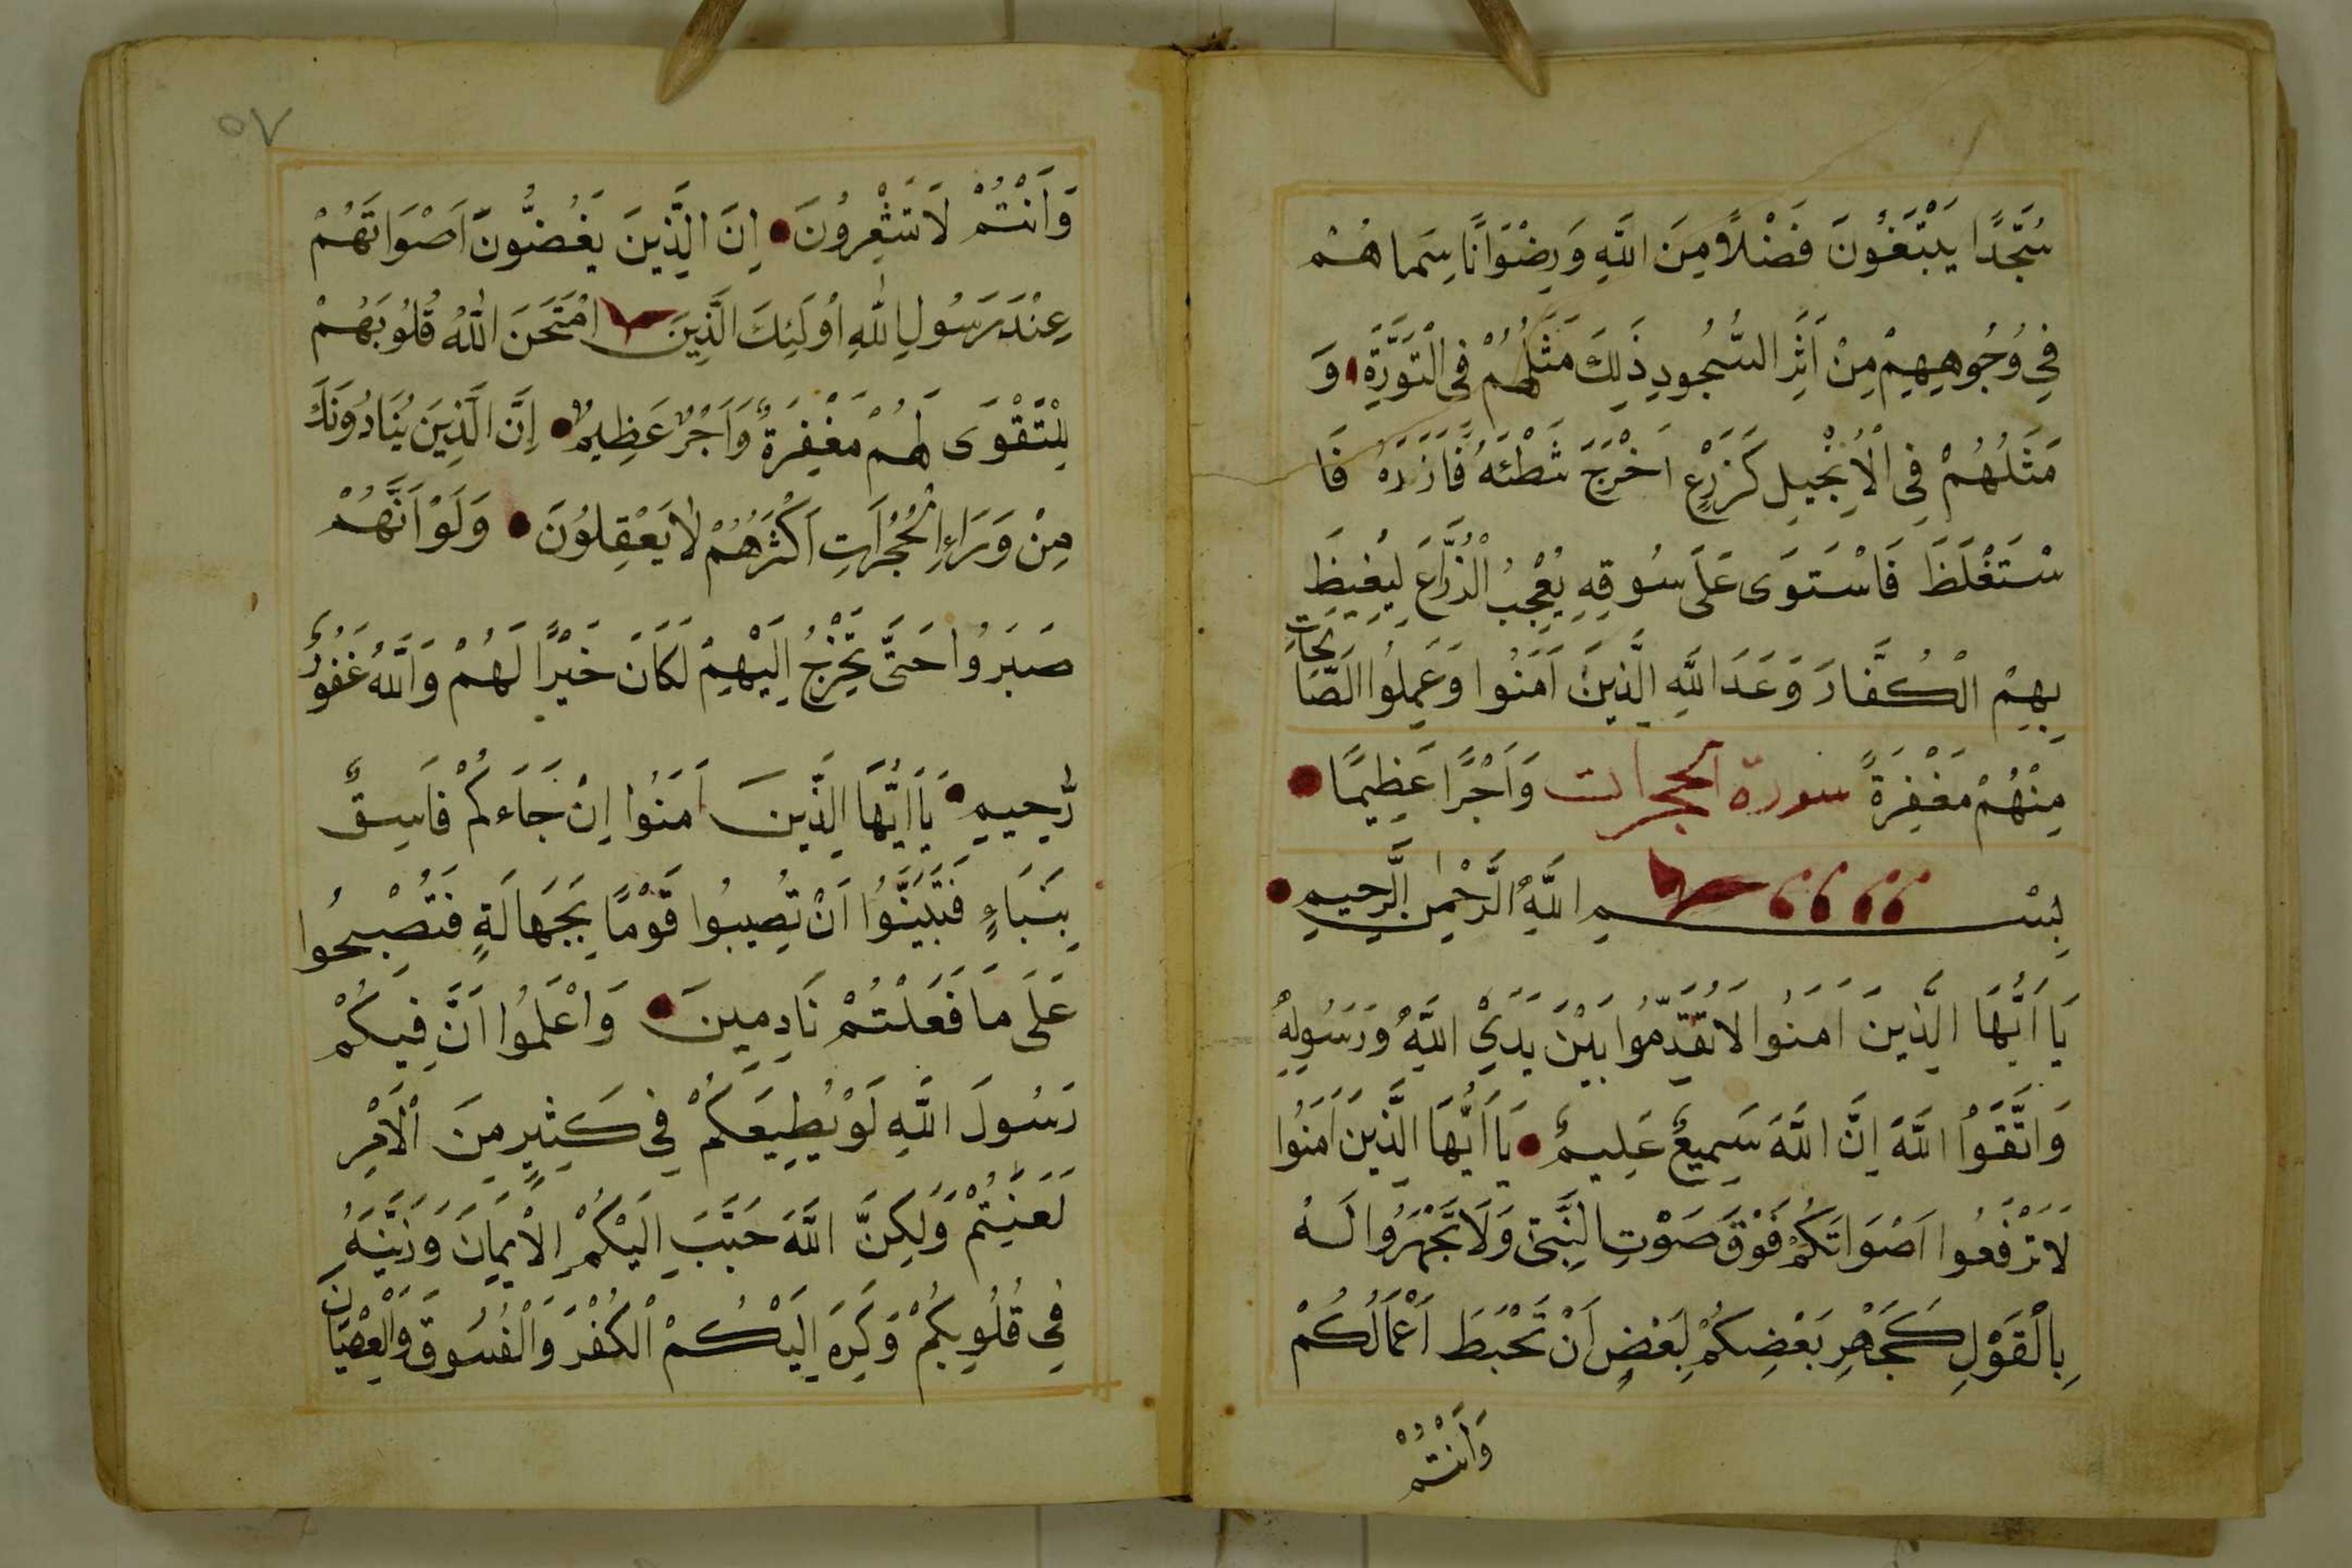 سُجَّدًا يَبْتَغُونَ فَضْلًا مِنَ اللَّهِ وَرِضْوَانًا سِيمَاهُمْ
فِي وُجُوهِهِمْ مِنْ أَثَرِ السُّجُودِ ذَلِكَ مَثَلُهُمْ فِى التَّوْرَٰةِ وَ
مَثَلُهُمْ فِى الْاِنْجِيلِ كَزَرْعٍ اَخْرَجَ شَطْئَهُ فَازَرَهُ فَا
سْتَغْلَظَ فَاسْتَوَى عَلَى سُوقِهِ يُعْجِبُ الْزُّرَّاعَ لِيَغِيظَ
بِهِمْ الْكُفَّارَ وَعَدَ اللَّهِ الَّذِينَ اَمَنُوا وَعَمِلُوا الصَّالِحَاتِ
مِنْهُمْ مَغْفِرَةً سورة الحجرات وَاَجْرًا عَظِيمًا
بِسْمِ اللَّهِ الرَّحْمٰنِ الرَّحِيمِ
يَا اَيُّهَا الَّذِينَ اَمَنُوا لَا تُقَدِّمُوا بَيْنَ يَدَيِ اللَّهِ وَرَسُولِهِ
وَاتَّقَوُا اللَّهَ اِنَّ اللَّهَ سَمِيعٌ عَلِيمٌ يَا اَيُّهَا الَّذِينَ اَمَنُوا
لَا تَرْفَعُوا اَصْوَاتَكُمْ فَوْقَ صَوْتِ النَّبِىِّ وَلَا تَجْهَرُوا لَهُ
بِالْقَوْلِ كَجَهْرِ بَعْضِكُمْ لِبَعْضٍ اَنْ تَحْبَطَ اَعْمَالُكُمْ
وَاَنْتُمْ
٥٧
وَاَنْتُمْ لَا تَشْعِرُونَ اِنَ الَّذِينَ يَغُضُّونَ اَصْوَاتَهُمْ
عِنْدَ رَسُولِ اللّٰهِ اُولَئِكَ الَّذِينَ امْتَحَنَ اللّٰهُ قُلُوبَهُمْ
لِلْتَّقْوَى لَهُمْ مَغْفِرَةٌ وَاَجْرٌ عَظِيمٌ اِنَّ الَّذِينَ يُنَادُونَكَ
مِنْ وَرَاءِ الْحُجُرَاتِ اَكْثَرُهُمْ لَا يَعْقِلُونَ وَلَوْ اَنَّهُمْ
صَبَرُوا حَتَّى تَخْرُجُ اِلَيْهِمْ لَكَانَ خَيْرًا لَهُمْ وَاللَّهُ غَفُورٌ
رَّحِيمٍ يَا اَيُّهَا الَّذِينَ اَمَنُوا اِنْ جَاءَكُمْ فَاسِقٌ
بِنَبَاءٍ فَتَبَيَّنُوا اَنْ تُصِيبُوا قَوْمًا بِجَهَالَةٍ فَتُصْبِحُوا
عَلَى مَا فَعَلْتُمْ نَادِمِينَ وَاعْلَمُوا اَنَّ فِيكُمْ
رَسُولَ اللَّهِ لَوْ يُطِيعَكُمْ فِي كَثِيرٍ مِنَ الْاَمْرِ
لَعَنِتُّمْ وَلَكِنَّ اللَّهَ حَبَّبَ اِلَيْكُمْ الْاِيمَانَ وَزَيَّنَهُ
فِي قُلُوبِكُمْ وَكَرِهَ اِلَيْكُمْ الْكُفْرَ وَالْفُسُوقَ وَالْعِصْيَانَ